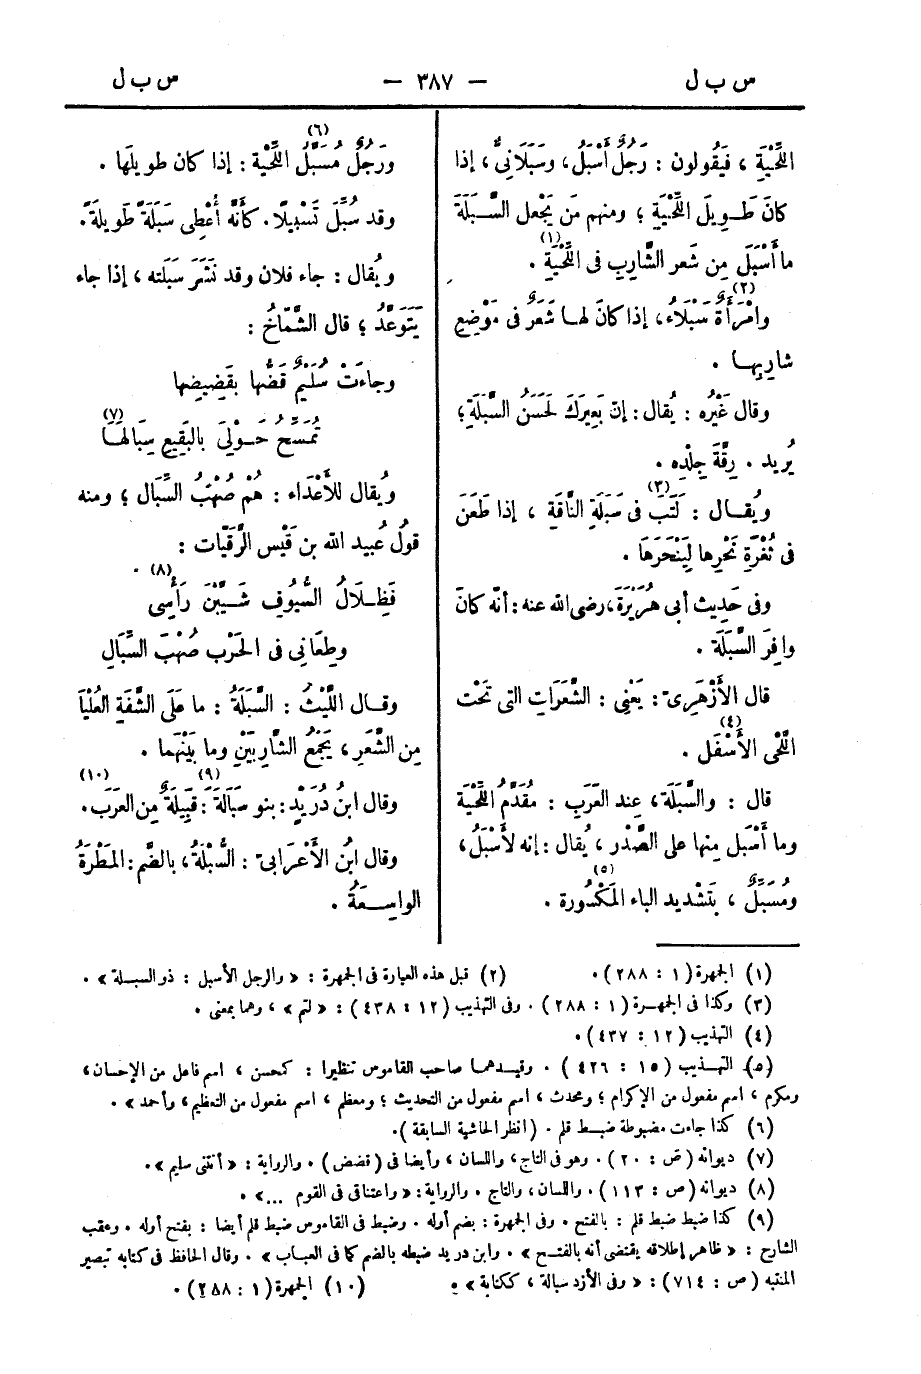 س ب ل — ٣٨٧ — س ب ل
اللِّحْيَةِ ، فيَقُولون : رَجُلٌ أَسْبَلُ، وسَبَلَانِىٌّ، إذا
كانَ طَـوِيلَ اللِّحْيَةِ ؛ ومنهم مَن يَجْعل السَّـبَلَةَ
ما أَسْبَلَ مِن شَعر الشَّارِب فى اللِّحْيَةِ (١).
وامْرَأةٌ سَبْلَاءُ (٢)، إذا كانَ لهـا شَعَرٌ فى مَوْضِعِ
شارِبِهـا .
وقال غَيْرُه : يُقال : إنّ بَعِيرَكَ لَحَسَنُ السَّبَلَةِ ؛
يُريد . رِقَّةَ جِلْدِه .
ويُقـال : لَتَبَ (٣) فى سَبَلَةِ النَّاقَةِ ، إذا طَعَن
فى ثُغْرَةِ نَحْرِها لِيَنْحَرَهَا .
وفى حَدِيث أبى هُرَيْرَةَ، رضى الله عنه : أنّه كانَ
وافِرَ السَّبَلَة .
قال الأَزْهَرِىّ : يَعْنِى : الشَّعَرَاتِ التى تَحْت
اللَّحْى الأَسْفَل (٤) .
قال : والسَّبَلَة، عِند العَرَبِ : مُقَدَّمُ اللِّحْيَة
وما أَسْبَل مِنها على الصَّدْر ، يُقال : إنه لَأَسْبَلُ،
ومُسَبِّلٌ ، بَتَشْديد الباء المَكْسُورة (٥) .
ورَجُلٌ مُسَبَّلُ (٦) اللِّحْية : إذا كان طويلَها .
وقد سُبِّلَ تَسْبِيلًا. كأنّه أُعْطِى سَبَلَةً طَوِيلَةً.
ويُقال : جاء فلان وقد نَشَرَ سَبَلته ، إذا جاء
يَتَوَعَّدُ ؛ قال الشَّمَّاخُ :
وجاءَتْ سُلَيْمٌ قَضُّها بقَضِيضِها
تُمَسِّحُ حَـوْلِى بالبَقِيعِ سِبَالَهَا (٧)
ويُقال للأَعْدَاء : هُمْ صُهْبُ السِّبَال ؛ ومنه
قولُ عُبيد الله بن قَيْس الرُّقَيّات :
فَظِـلَالُ السُّيُوفِ شَـيَّبْنَ رَأْسِى (٨)
وطِعَانِى فى الحَرْب صُهْبَ السِّبَالِ
وقـال اللَّيْثُ : السَّبَلَةُ : ما عَلَى الشَّفَةِ العُلْيَا
مِن الشَّعَرِ ، يَجْمَعُ الشَّارِبَيْنِ وما بَيْنَهُما .
وقال ابنُ دُرَيْدٍ : بنو سَبَالَةَ (٩) : قَبِيلَةٌ مِن العَرَب (١٠).
وقال ابنُ الأَعْرَابىّ : السُّبْلَةُ، بالضّم : المَطْرَةُ
الواسِـعَةُ .
(١) الجمهرة (١ : ٢٨٨) . (٢) قبل هذه العبارة فى الجمهرة : « والرجل الأسبل : ذو السبـلة » .
(٣) وكذا فى الجمهـرة (١ : ٢٨٨) . وفى التهذيب (١٢ : ٤٣٨) : « لتم » ، وهما بمعنى .
(٤) التهذيب (١٢ : ٤٣٧) .
(٥) التهـذيب (١٥ : ٤٢٦) . وقيـدهمـا صاحب القاموس تنظيرا : كمحسن ، اسم فاعل من الإحسان ،
ومكرم ، اسم مفعول من الإكرام ؛ ومحدث ، اسم مفعول من التحديث ؛ ومعظم ، اسم مفعول من التعظيم ، وأحمد » .
(٦) كذا جاءت مضبوطة ضبـط قلم . (انظر الحاشية السابقة ).
(٧) ديوانه (ص : ٢٠) . وهو فى التاج، واللسان ، وأيضا فى (قضض) . والرواية : « أتتنى سليم ».
(٨) ديوانه (ص : ١١٣) . واللسان، والتاج . والرواية : « واعتناقى فى القوم ...» .
(٩) كذا ضبط ضبط قلم : بالفتح . وفى الجمهرة : بضم أوله . وضبط فى القاموس ضبط قلم أيضا : بفتح أوله . وعقب
الشارح : « ظاهر إطلاقه يقتضى أنه بالفتـح » . وابن دريد ضبطه بالضم كما فى العباب » . وقال الحافظ فى كتابه تبصير
المنتبه (ص : ٧١٤) : « وفى الأزد سبالة ، ككتابة » . (١٠) الجمهرة (١ : ٢٨٨) .